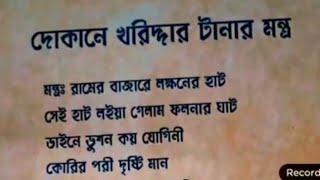 দোকানে খরিদ্দার টানার মন্ত্র
মন্ত্রঃ রামের বাজারে লক্ষনের হাট
সেই হাট লইয়া গেলাম ফলনার ঘাট
ডাইনে ডুশন কয় যোগিনী
কোরির পরী দৃষ্টি মান
Record